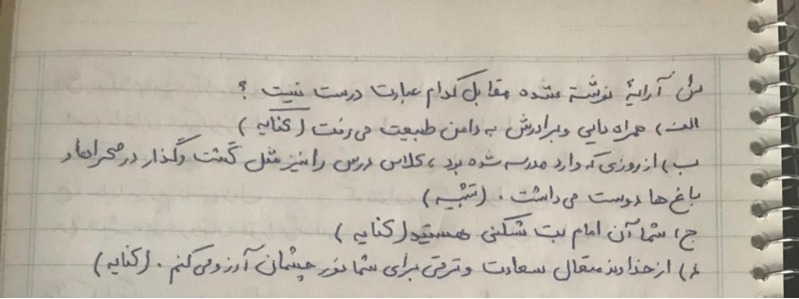 س) آرایهٔ نوشته شده مقابل کدام عبارت درست نیست ؟
الف) همراه دایی و برادرش به دامن طبیعت می رفت (کنایه)
ب) از روزی که وارد مدرسه شده بود ، کلاس درس را نیز مثل گشت و گذار در صحراها و
باغ ها دوست می داشت . (تشبیه)
ج) شما آن امام بت شکنی هستید (کنایه)
د) از خداوند متعال سعادت و ترقی برای شما نور چشمان آرزو می کنم . (کنایه)